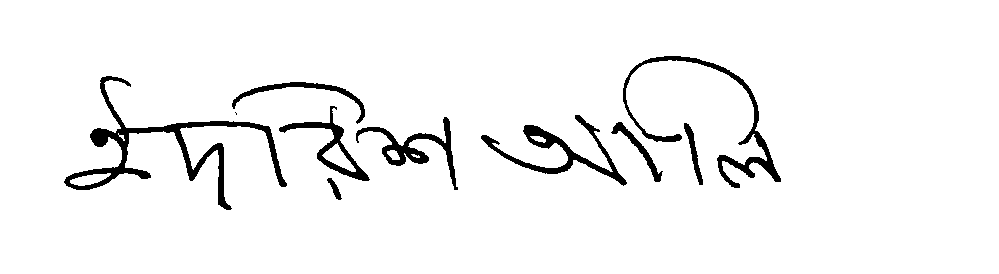 ইদরিশ আলি